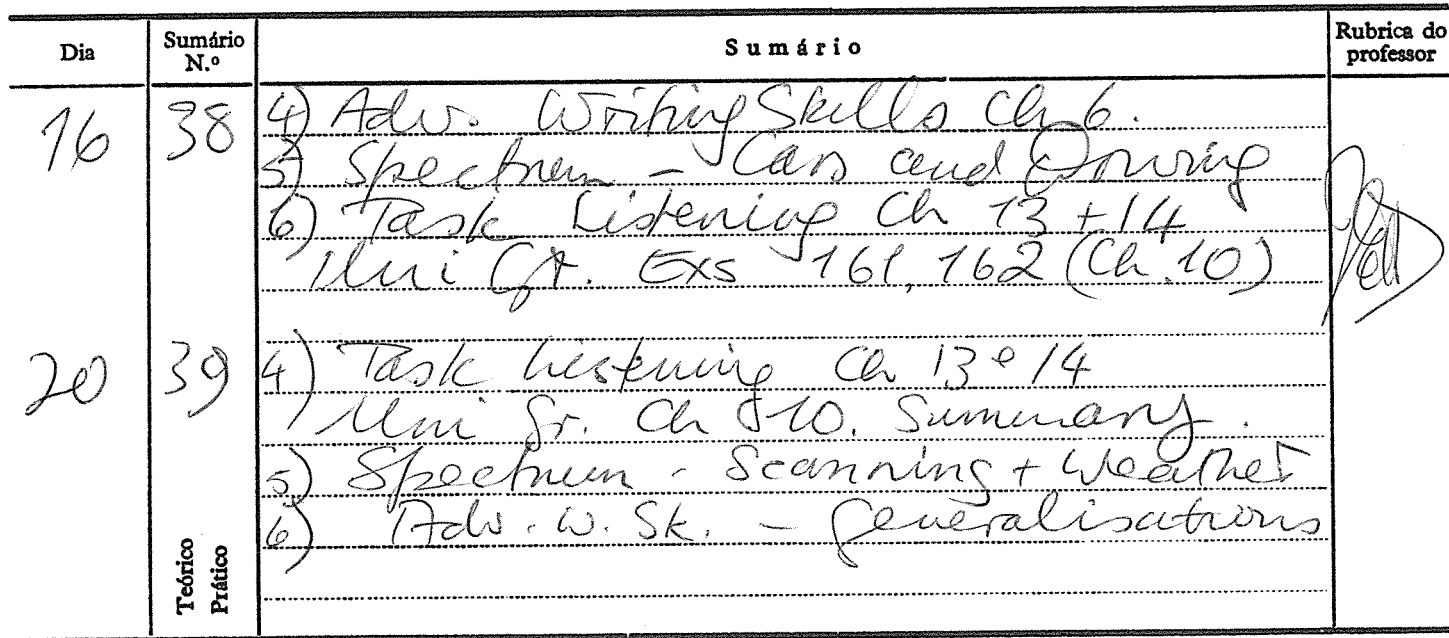 Dia Sumário N.º Sumário Rubrica do professor
16 38 4) Adv. Writing Skills Ch 6.
5) Spectrum - Cars and Driving
6) Task Listening Ch 13 + 14
Uni Gr. Exs 161, 162 (Ch. 10)
20 39 4) Task Listening Ch 13 e 14
Uni Gr. Ch 10. Summary.
5) Spectrum - Scanning + Weather
6) Adv. W. Sk. - Generalisations
Teórico
Prático